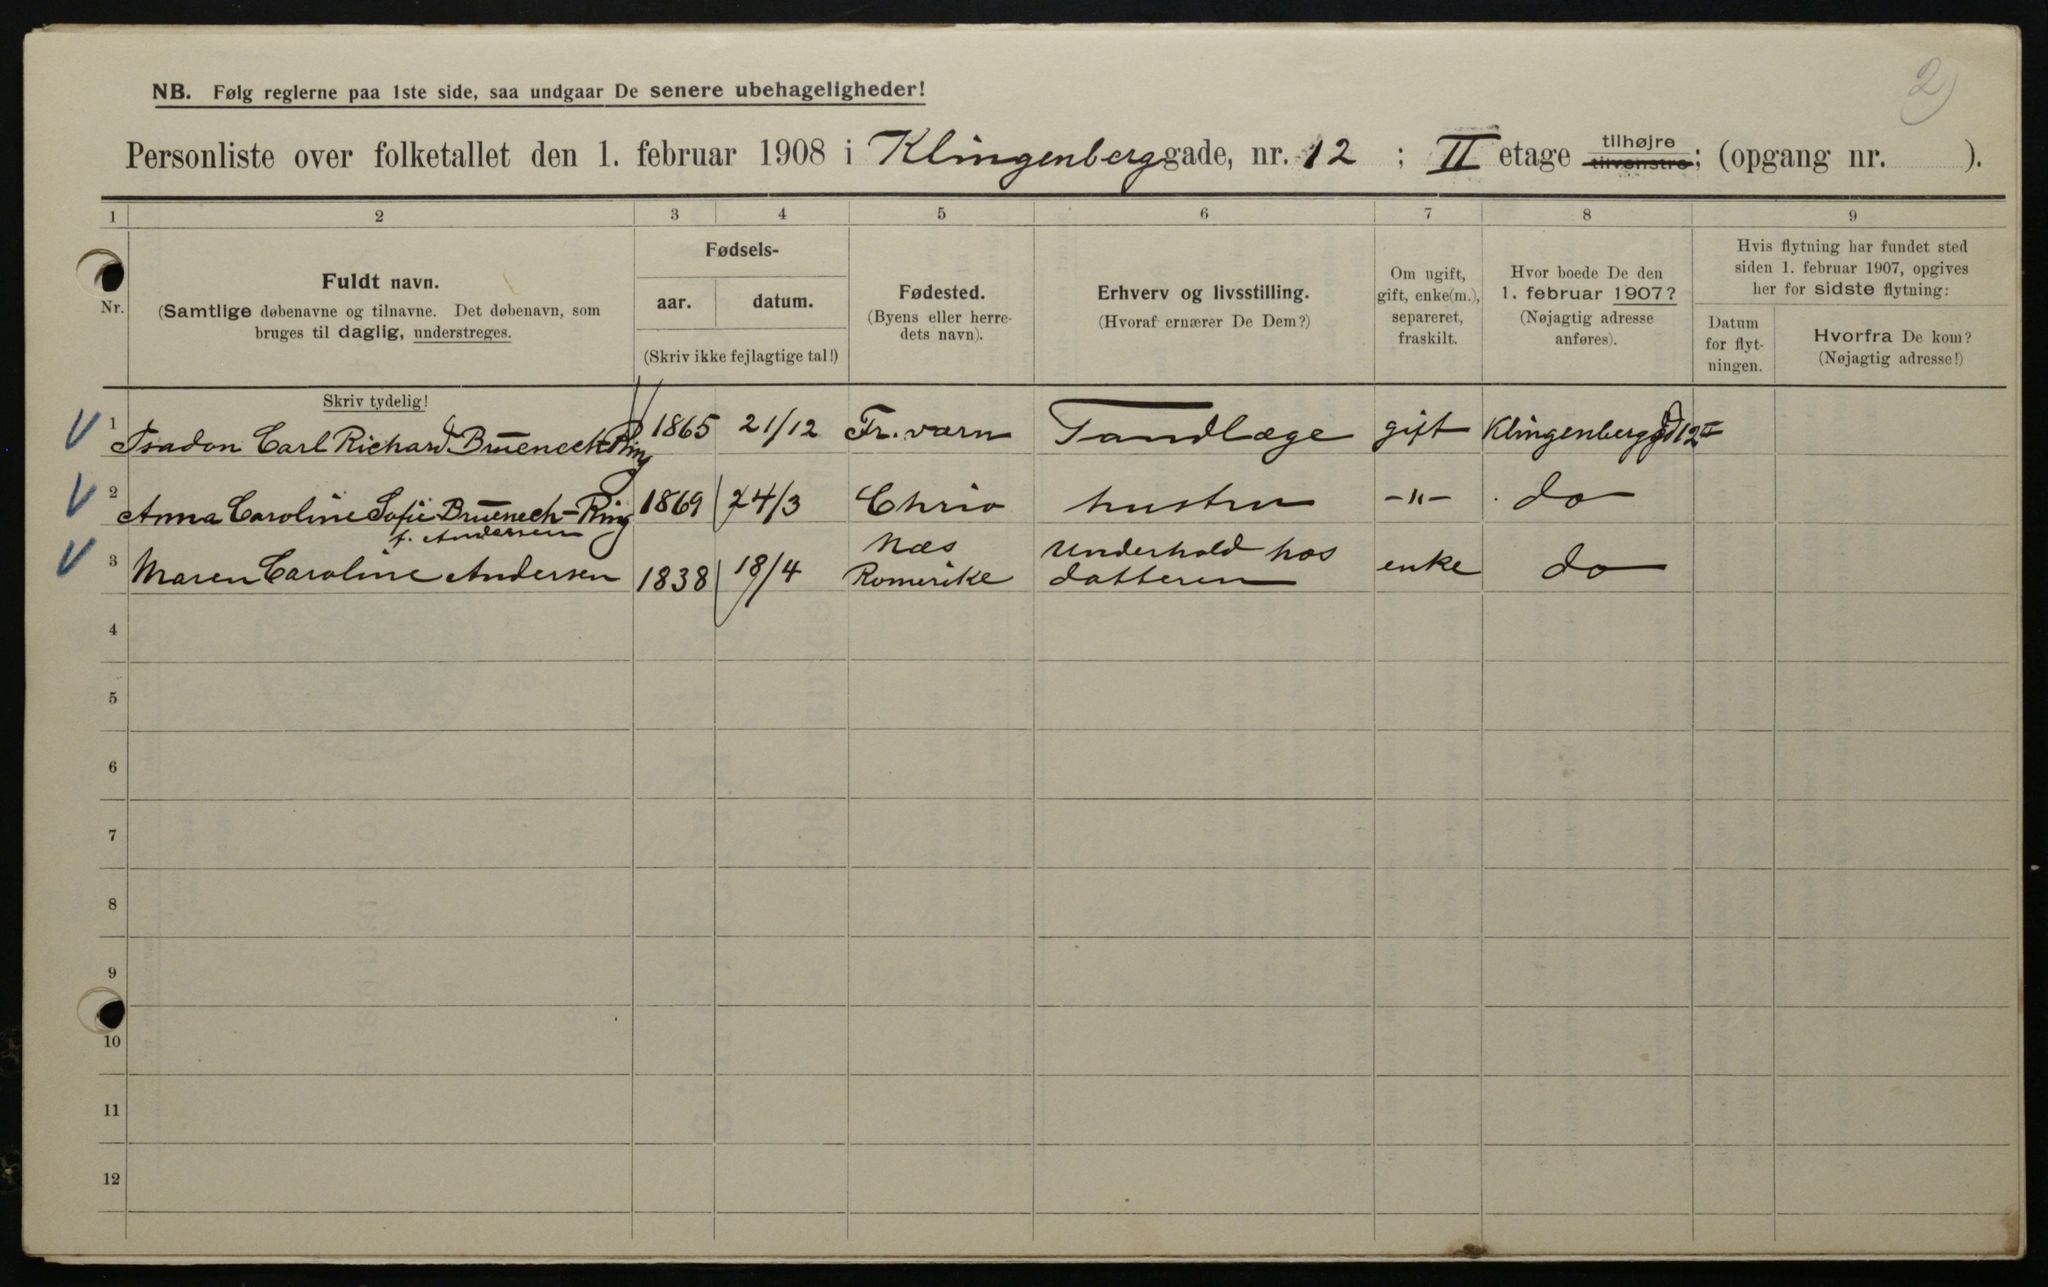 2)
NB. Følg reglerne paa 1ste side, saa undgaar De senere ubehageligheder!
Personliste over folketallet den 1. februar 1908 i Klingenberggade, nr. 12 ; II etage tilhøjre tilvenstre; (opgang nr. ).
1 2 3 4 5 6 7 8 9
Nr.
Fuldt navn.
(Samtlige døbenavne og tilnavne. Det døbenavn, som
bruges til daglig, understreges.
Fødsels-
aar. datum.
(Skriv ikke fejlagtige tal!)
Fødested.
(Byens eller herre-
dets navn).
Erhverv og livsstilling.
(Hvoraf ernærer De Dem?)
Om ugift,
gift, enke(m.),
separeret,
fraskilt.
Hvor boede De den
1. februar 1907?
(Nøjagtig adresse
anføres).
Hvis flytning har fundet sted
siden 1. februar 1907, opgives
her for sidste flytning:
Datum
for flyt-
ningen.
Hvorfra De kom?
(Nøjagtig adresse!)
Skriv tydelig!
1 Carl Richard Brüenech-Ring 1865 21/12 Fr.værn Tandlæge gift Klingenberggd 12 II
2 Anna Caroline Sofie Brüenech-Ring 1869 24/3 Chria hustru -"- do
f. Andersen
3 Maren Caroline Andersen 1838 18/4 Næs Romerike Underhold hos datteren enke do
4
5
6
7
8
9
10
11
12